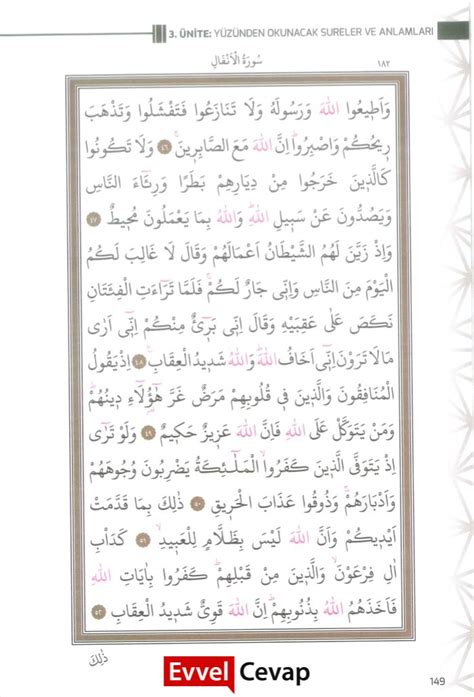 3. ÜNİTE: YÜZÜNDEN OKUNACAK SURELER VE ANLAMLARI
سُورَةُ الْاَنْفَالِ
١٨٢
وَاَط۪يعُوا اللّٰهَ وَرَسُولَهُ وَلَا تَنَازَعُوا فَتَفْشَلُوا وَتَذْهَبَ
ر۪يحُكُمْ وَاصْبِرُواۜ اِنَّ اللّٰهَ مَعَ الصَّابِر۪ينَۚ ٤٦ وَلَا تَكُونُوا
كَالَّذ۪ينَ خَرَجُوا مِنْ دِيَارِهِمْ بَطَرًا وَرِئَٓاءَ النَّاسِ
وَيَصُدُّونَ عَنْ سَب۪يلِ اللّٰهِۜ وَاللّٰهُ بِمَا يَعْمَلُونَ مُح۪يطٌ ٤٧
وَاِذْ زَيَّنَ لَهُمُ الشَّيْطَانُ اَعْمَالَهُمْ وَقَالَ لَا غَالِبَ لَكُمُ
الْيَوْمَ مِنَ النَّاسِ وَاِنّ۪ي جَارٌ لَكُمْۚ فَلَمَّا تَرَٓاءَتِ الْفِئَتَانِ
نَكَصَ عَلٰى عَقِبَيْهِ وَقَالَ اِنّ۪ي بَر۪ٓيءٌ مِنْكُمْ اِنّ۪ٓي اَرٰى
مَا لَا تَرَوْنَ اِنّ۪ٓي اَخَافُ اللّٰهَۜ وَاللّٰهُ شَد۪يدُ الْعِقَابِ۟ ٤٨ اِذْ يَقُولُ
الْمُنَافِقُونَ وَالَّذ۪ينَ ف۪ي قُلُوبِهِمْ مَرَضٌ غَرَّ هٰٓؤُ۬لَٓاءِ د۪ينُهُمْۜ
وَمَنْ يَتَوَكَّلْ عَلَى اللّٰهِ فَاِنَّ اللّٰهَ عَز۪يزٌ حَك۪يمٌ ٤٩ وَلَوْ تَرٰٓى
اِذْ يَتَوَفَّى الَّذ۪ينَ كَفَرُواۙ الْمَلٰٓئِكَةُ يَضْرِبُونَ وُجُوهَهُمْ
وَاَدْبَارَهُمْۚ وَذُوقُوا عَذَابَ الْحَر۪يقِ ٥٠ ذٰلِكَ بِمَا قَدَّمَتْ
اَيْد۪يكُمْ وَاَنَّ اللّٰهَ لَيْسَ بِظَلَّامٍ لِلْعَب۪يدِۙ ٥١ كَدَأْبِ
اٰلِ فِرْعَوْنَۙ وَالَّذ۪ينَ مِنْ قَبْلِهِمْۜ كَفَرُوا بِاٰيَاتِ اللّٰهِ
فَاَخَذَهُمُ اللّٰهُ بِذُنُوبِهِمْۜ اِنَّ اللّٰهَ قَوِيٌّ شَد۪يدُ الْعِقَابِ ٥٢
ذٰلِكَ
Evvel Cevap
149